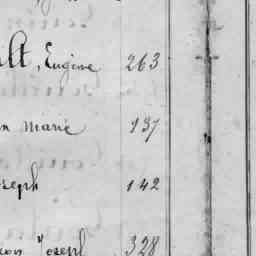 lt, Eugène 263
n Marie 137
oseph 142
on Joseph 328